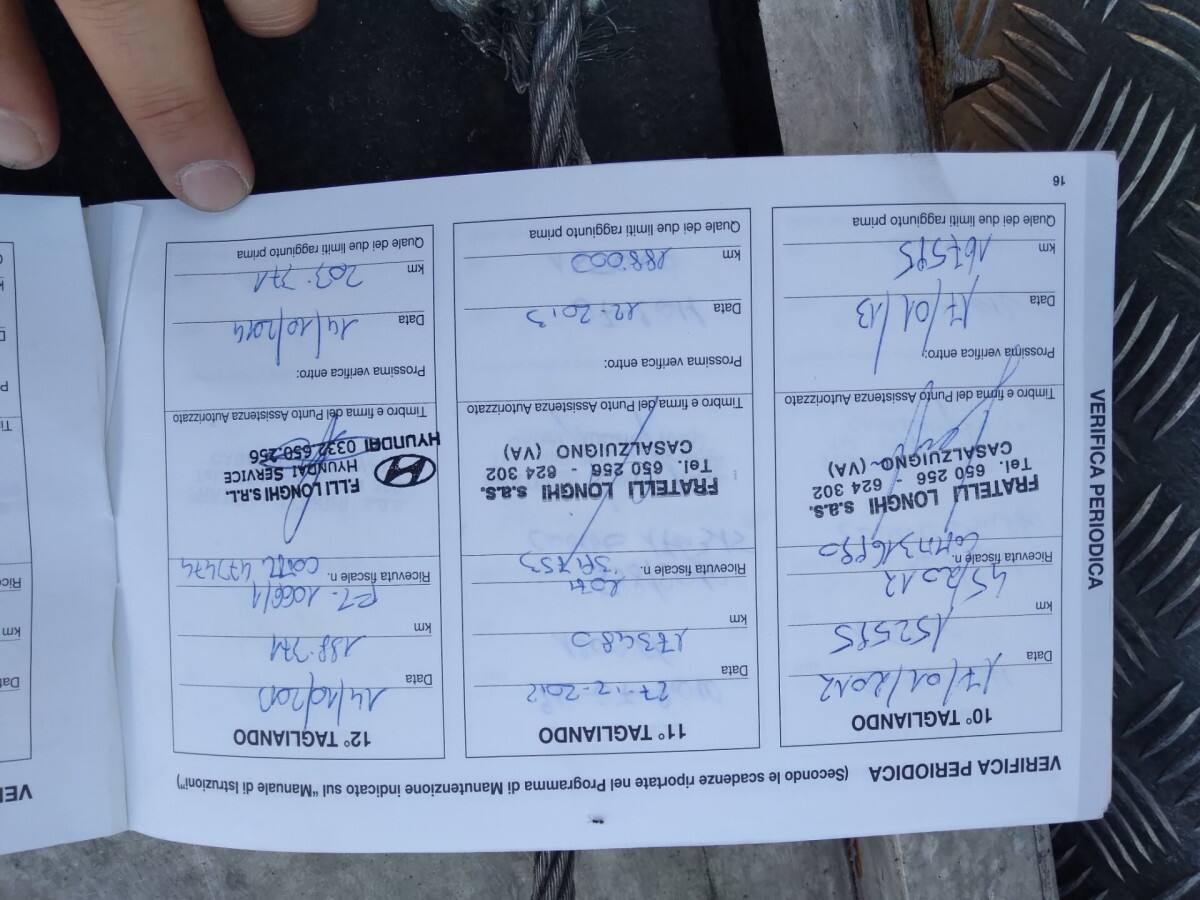 VERIFICA PERIODICA (Secondo le scadenze riportate nel Programma di Manutenzione indicato sul "Manuale di Istruzioni")
10° TAGLIANDO
Data 17/01/2012
km 152595
Ricevuta fiscale n. 45/2012
FRATELLI LONGHI s.a.s.
Tel. 650 256 - 624 302
CASALZUIGNO (VA)
Timbro e firma del Punto Assistenza Autorizzato
Prossima verifica entro:
Data 17/01/13
km 167595
Quale dei due limiti raggiunto prima
11° TAGLIANDO
Data 27-12-2012
km 173480
Ricevuta fiscale n.
FRATELLI LONGHI s.a.s.
Tel. 650 256 - 624 302
CASALZUIGNO (VA)
Timbro e firma del Punto Assistenza Autorizzato
Prossima verifica entro:
Data 12-2013
km 188000
Quale dei due limiti raggiunto prima
12° TAGLIANDO
Data
km 188.771
Ricevuta fiscale n.
F.LLI LONGHI S.R.L.
HYUNDAI SERVICE
HYUNDAI 0332.650.256
Timbro e firma del Punto Assistenza Autorizzato
Prossima verifica entro:
Data 14/10/2014
km 203.771
Quale dei due limiti raggiunto prima
16
VERIFICA PERIODICA